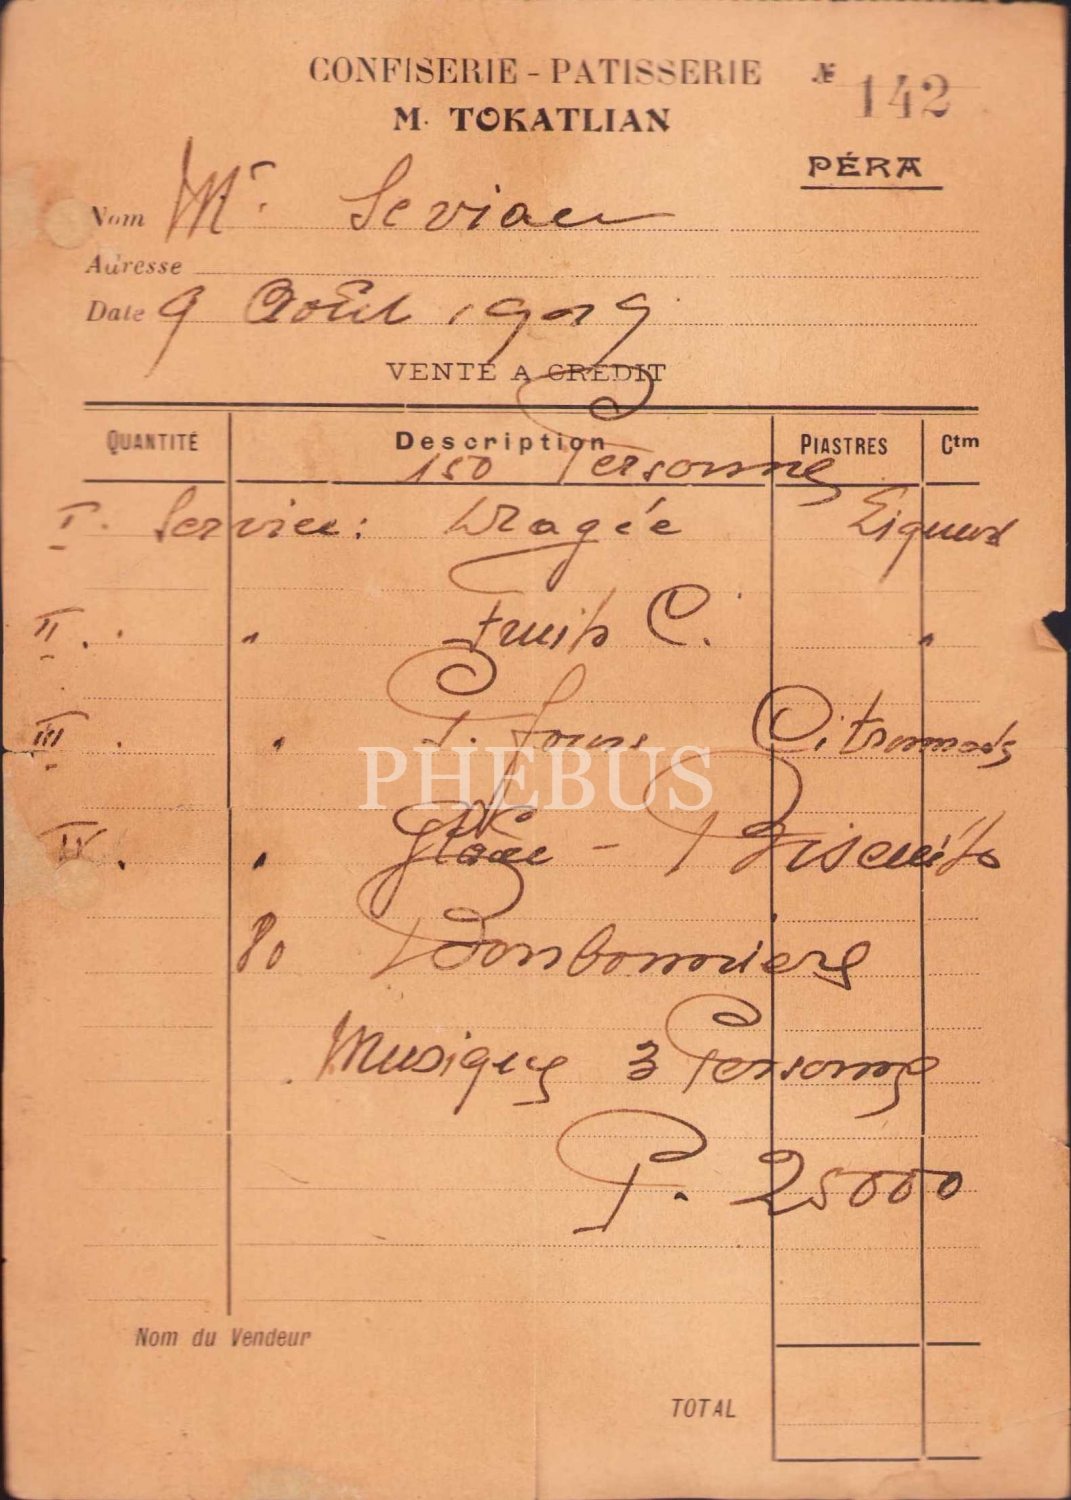 CONFISERIE - PATISSERIE № 142
M. TOKATLIAN
PÉRA
Nom Mr. Sevian
Adresse
Date 9 Août 1929
VENTE A CRÉDIT
QUANTITÉ Description PIASTRES Ctm
150 Personne
I. Service: Dragée Liqueur
II. " " Fruits C. "
III. " P. Fours Citronnade
IV. " Glace - Biscuits
80 Bonbonniere
PHEBUS
Musique 3 Personne
P. 25000
Nom du Vendeur
TOTAL